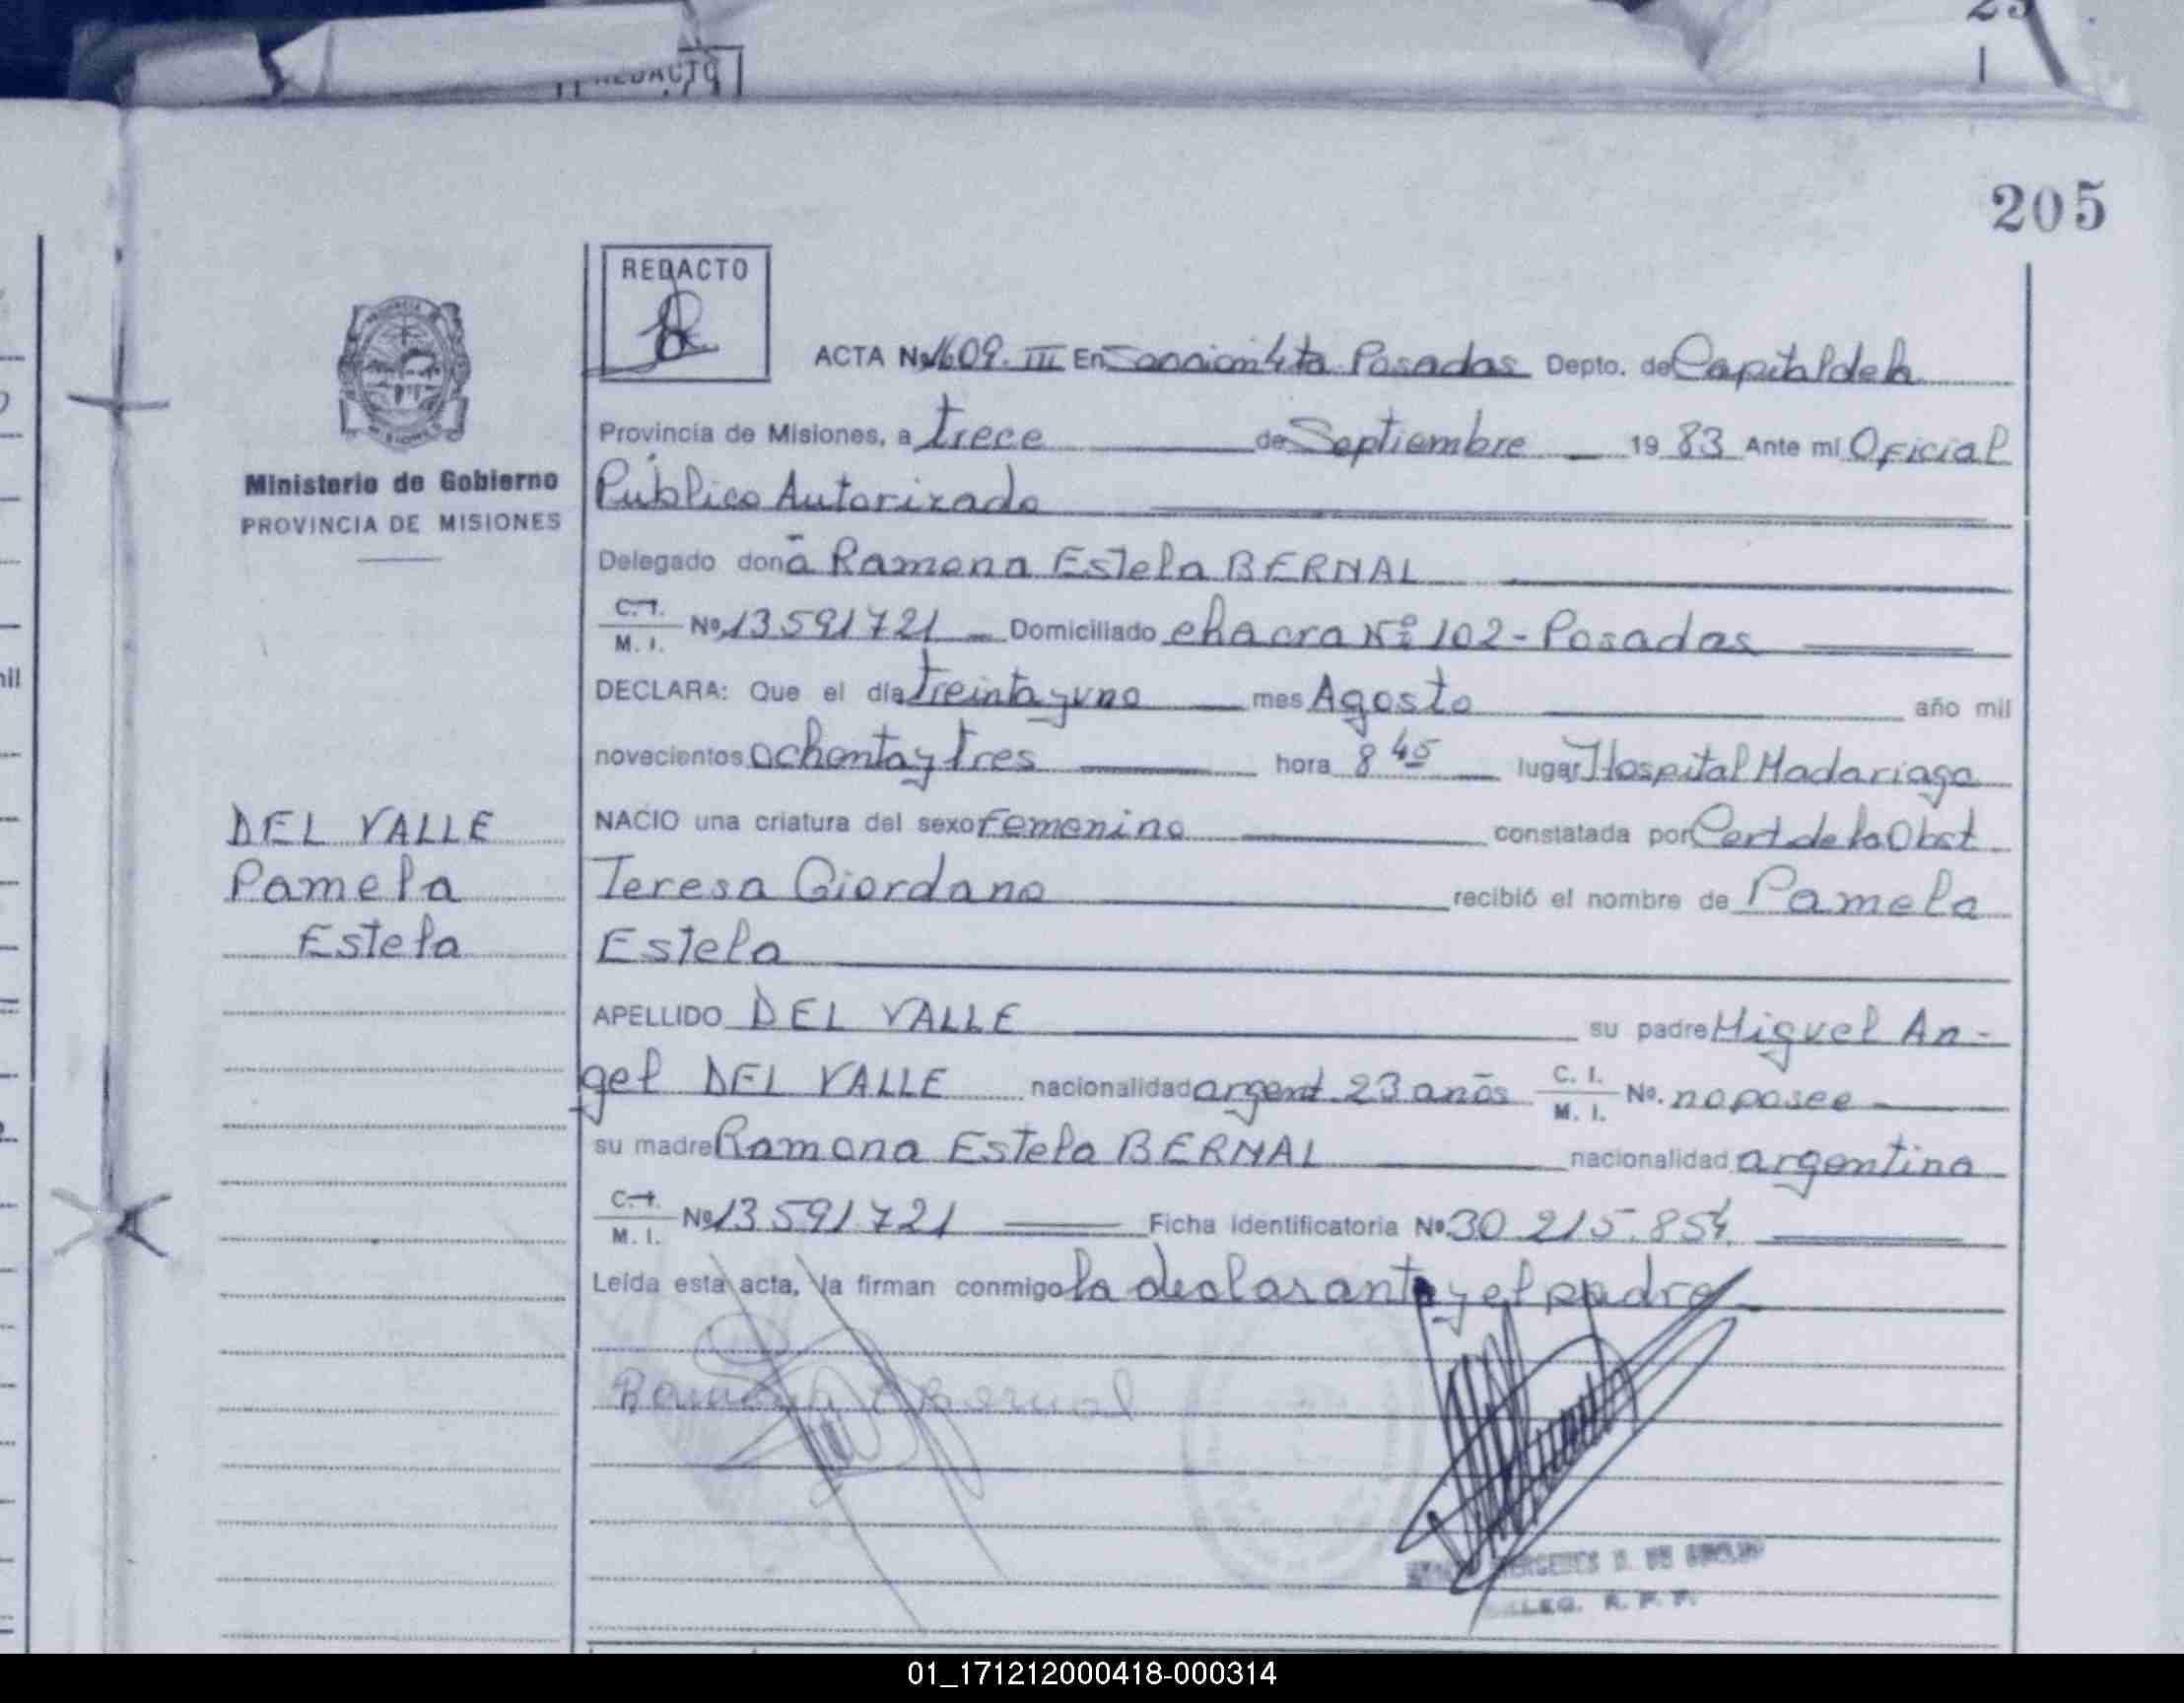 REDACTO
205
REDACTO
ACTA Nº 1609. III En Seccion 4ta. Posadas Depto. de Capital de la
Provincia de Misiones, a trece de Septiembre 1983 Ante mí Oficial
Público Autorizado
Ministerio de Gobierno
PROVINCIA DE MISIONES
Delegado doña Ramona Estela BERNAL
C. I.
M. I. Nº 13591721 Domiciliado chacra Nº 102 - Posadas
DECLARA: Que el día treinta y uno mes Agosto año mil
novecientos ochenta y tres hora 8 45 lugar Hospital Madariaga
NACIO una criatura del sexo femenino constatada por Cert. de la Obst.
DEL VALLE
Pamela
Estela
Teresa Giordano recibió el nombre de Pamela
Estela
APELLIDO DEL VALLE su padre Miguel An-
gel DEL VALLE nacionalidad argent. 23 años C. I. M. I. No. no posee
su madre Ramona Estela BERNAL nacionalidad argentina
C. I.
M. I. Nº 13591.721 Ficha identificatoria Nº 30.215.854
Leída esta acta, la firman conmigo la declarante y el padre
Ramona E Bernal
01_171212000418-000314